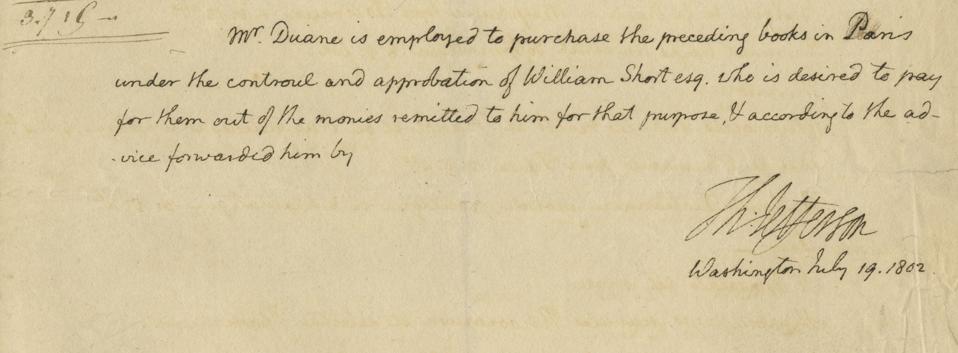 3.719
Mr. Duane is employed to purchase the preceding books in Paris
under the controul and approbation of William Short esq. who is desired to pay
for them out of the monies remitted to him for that purpose, & according to the ad-
-vice forwarded him by
Th: Jefferson
Washington July 19. 1802.